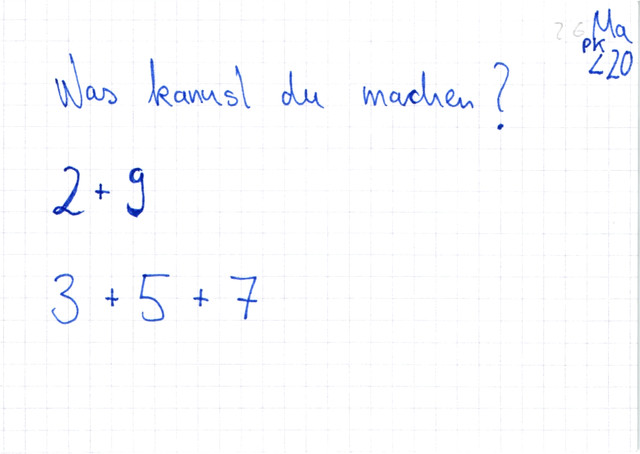 Ma
pk
<20
Was kannst du machen?
2 + 9
3 + 5 + 7